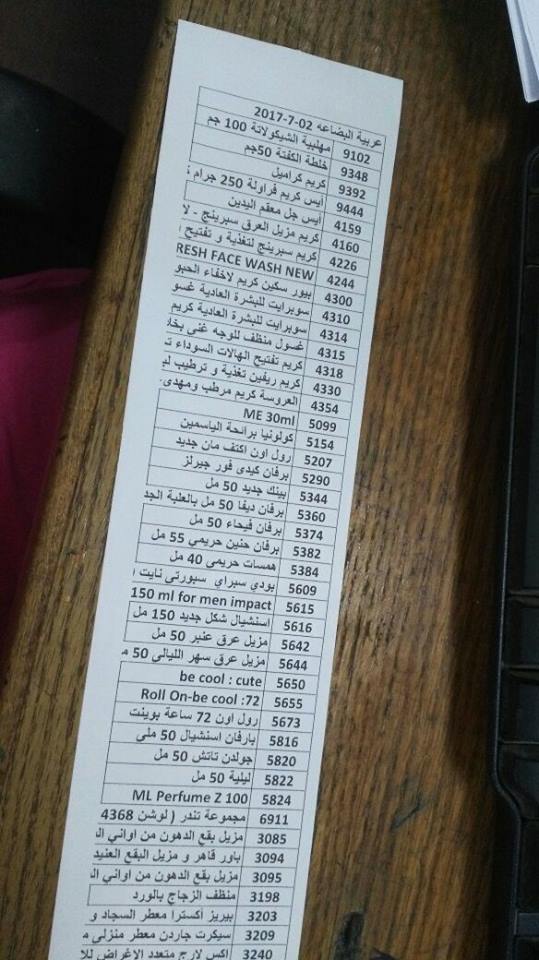 عربية البضاعه 02-7-2017
9102 مهلبية الشيكولاتة 100 جم
9348 خلطة الكفتة 50جم
9392 كريم كراميل
9444 أيس كريم فراولة 250 جرام
4159 أيس جل معقم اليدين
4160 كريم مزيل العرق سبرينج - لا
4226 كريم سبرينج لتغذية و تفتيح
4244 RESH FACE WASH NEW
4300 بيور سكين كريم لاخفاء الحبو
4310 سوبرايت للبشرة العادية غسو
4314 سوبرايت للبشرة العادية كريم
4315 غسول منظف للوجه غني بخلا
4318 كريم تفتيح الهالات السوداء ت
4330 كريم ريفين تغذية و ترطيب لي
4354 العروسة كريم مرطب ومهدى
5099 ME 30ml
5154 كولونيا برائحة الياسمين
5207 رول اون اكتف مان جديد
5290 برفان كيدى فور جيرلز
5344 بينك جديد 50 مل
5360 برفان ديفا 50 مل بالعلبة الجد
5374 برفان فيحاء 50 مل
5382 برفان حنين حريمي 55 مل
5384 همسات حريمي 40 مل
5609 بودي سبراي سبورتى نايت
5615 150 ml for men impact
5616 اسنشيال شكل جديد 150 مل
5642 مزيل عرق عنبر 50 مل
5644 مزيل عرق سهر الليالى 50 م
5650 be cool : cute
5655 Roll On-be cool :72
5673 رول اون 72 ساعة بوينت
5816 بارفان اسنشيال 50 ملى
5820 جولدن تاتش 50 مل
5822 ليلية 50 مل
5824 ML Perfume Z 100
6911 مجموعة تندر ( لوشن 4368
3085 مزيل بقع الدهون من اواني ال
3094 باور قاهر و مزيل البقع العنيد
3095 مزيل بقع الدهون من اواني ال
3198 منظف الزجاج بالورد
3203 بيريز أكسترا معطر السجاد و
3209 سيكرت جاردن معطر منزلى م
3240 اكس لارج متعدد الاغراض للا